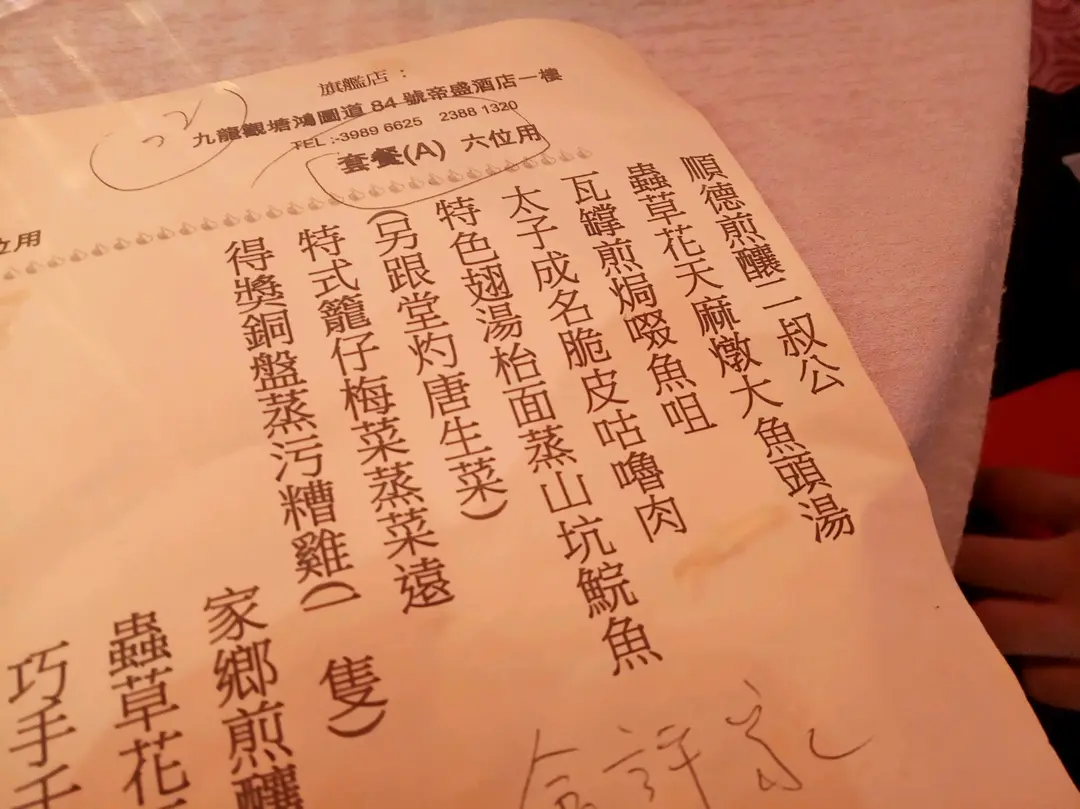 旗艦店：
九龍觀塘鴻圖道 84 號帝盛酒店一樓
TEL :-3989 6625 2388 1320
套餐(A) 六位用
順德煎釀二叔公
蟲草花天麻燉大魚頭湯
瓦罉煎焗啜魚咀
太子成名脆皮咕嚕肉
特色翅湯枱面蒸山坑鯇魚
(另跟堂灼唐生菜)
特式籠仔梅菜蒸菜遠
得獎銅盤蒸污糟雞(一隻)
位用
家鄉煎釀
蟲草花
巧手